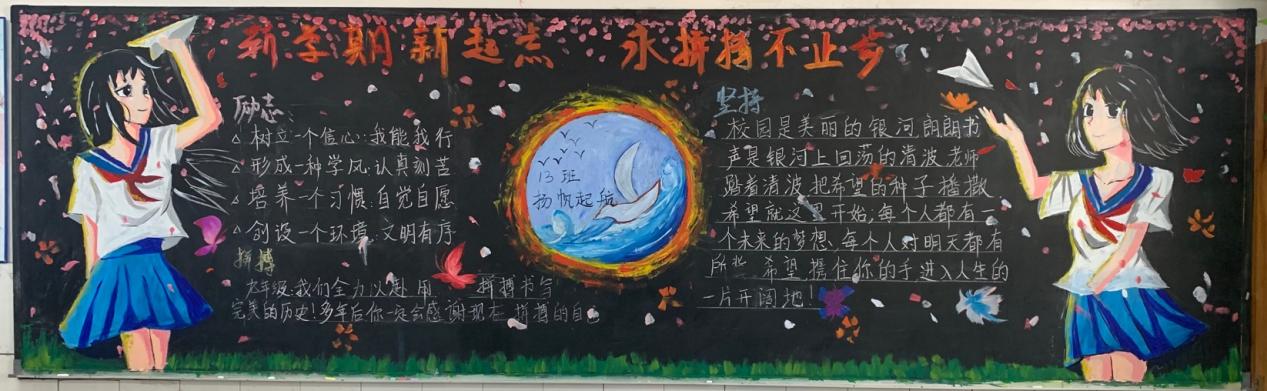 新学期新起点 永拼搏不止步
励志
树立一个信心:我能我行
形成一种学风:认真刻苦
培养一个习惯:自觉自愿
创设一个环境:文明有序
拼搏
六年级.我们全力以赴 用 拼搏书写
完美的历史!多年后你一定会感谢现在拼搏的自己
13班
扬帆起航
坚持
校园是美丽的银河,朗朗书
声是银河上回荡的清波,老师
踏着清波,把希望的种子播撒
希望就这里开始;每个人都有一
个未来的梦想,每个人对明天都有
所 希望 携住你的手进入人生的
一片开阔地!